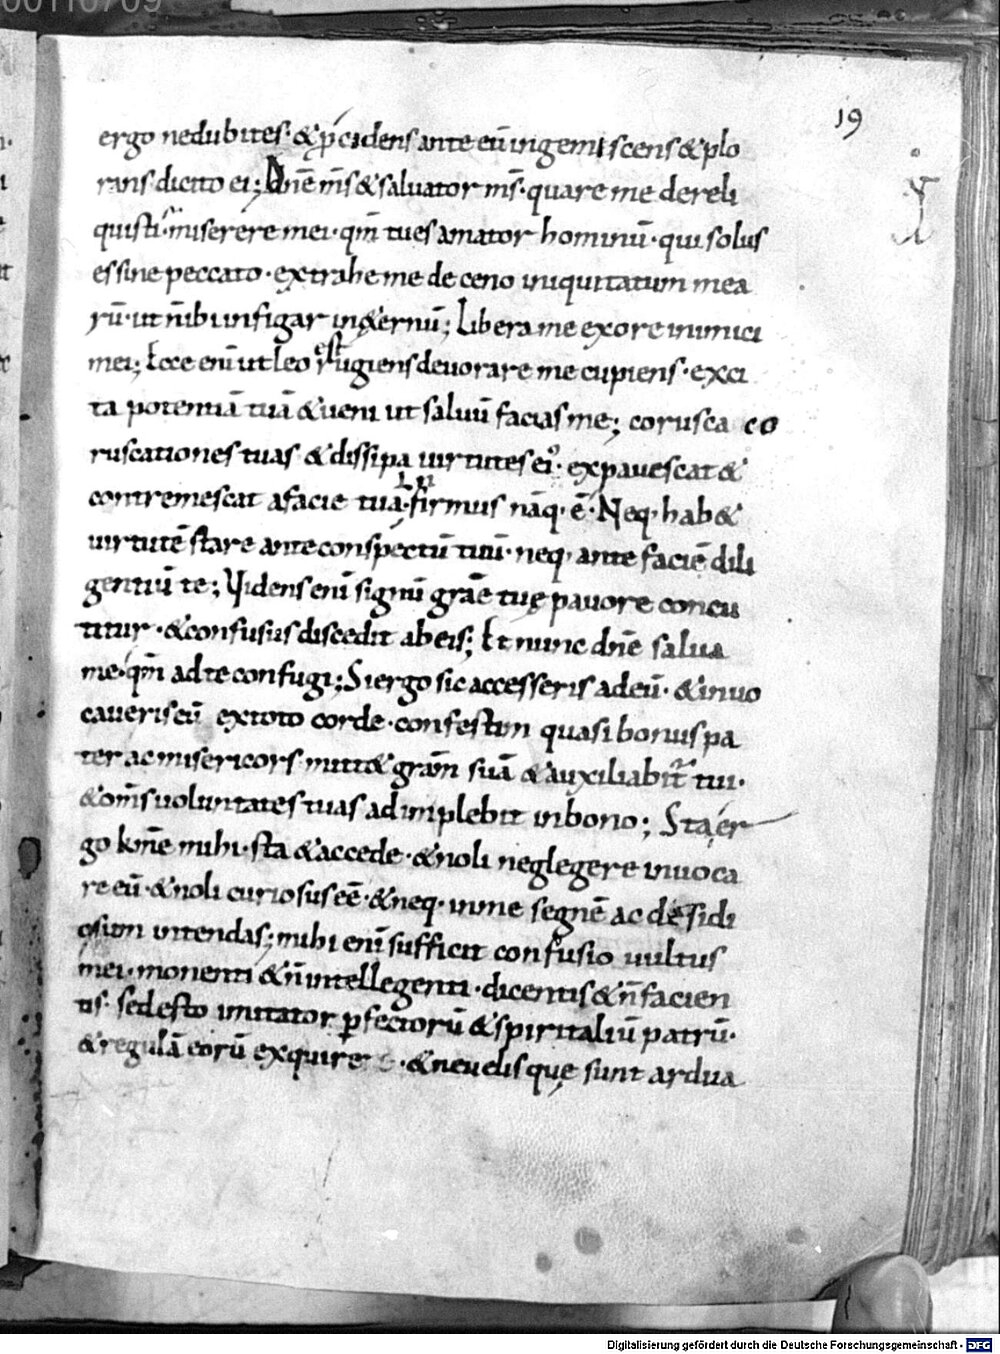 19
ergo nedubites· & p̄cidens ante eū ingemiscens & plo
rans dicito ei; Dn̄e m̄s & saluator m̄s· quare me dereli
quisti· miserere mei· qm̄ tu es amator hominū· qui solus
es sine peccato· extrahe me de ceno iniquitatum mea
rū· ut n̄ ibi infigar in &ernū; Libera me ex ore inimici
mei; Ecce eni ut leo est rugiens deuorare me cupiens· exci
ta potentiā tuā & ueni ut saluū facias me; corusca co
ruscationes tuas & dissipa uirtutes ei᾽· expauescat &
contremescat a facie tua· In firmus nāq· ē· Neq· hab&
uirtutē stare ante conspectū tuū· neq· ante faciē dili
gentiū te; Uidens enī signū grāe tuę pauore concu
titur· & confusus discedit ab eis; Et nunc dn̄e salua
me· qm̄ ad te confugi; Si ergo sic accesseris ad eū· & inuo
caueris eū ex toto corde· confestim quasi bonus pa
ter ac misericors mitt& grām suā & auxiliabit᷑ tui·
& om̄s uoluntates tuas adimplebit in bono; Sta er
go km̄e mihi· sta & accede· & noli neglegere inuoca
re eū· & noli curiosus eē· & neq· in me segnē ac desidi
osum intendas; mihi enī sufficit confusio uultus
mei· monenti & n̄ intellegenti· dicentis & n̄ facien
tis· sed esto imitator ꝑfectorū & spiritaliū patrū·
& regulā eorū exquire · & ne uelis quę sunt ardua
Digitalisierung gefördert durch die Deutsche Forschungsgemeinschaft - DFG